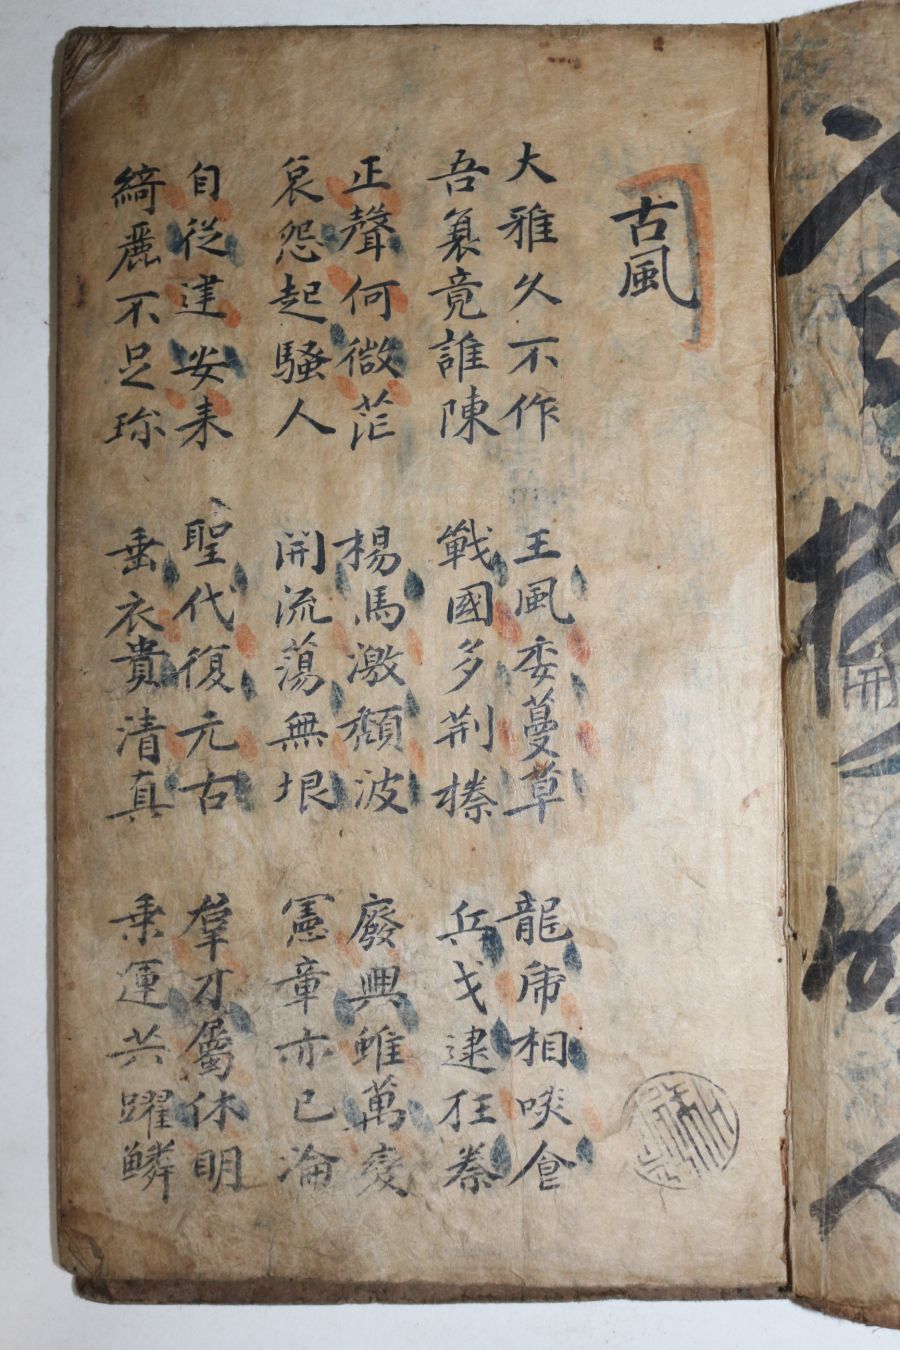 古風
大雅久不作
吾衰竟誰陳
王風委蔓草
戰國多荆榛
龍虎相啖食
兵戈逮狂秦
正聲何微茫
哀怨起騷人
楊馬激頽波
開流蕩無垠
廢興雖萬變
憲章亦已淪
自從建安来
綺麗不足珎
聖代復元古
垂衣貴清真
羣才屬休明
乘運共躍鱗